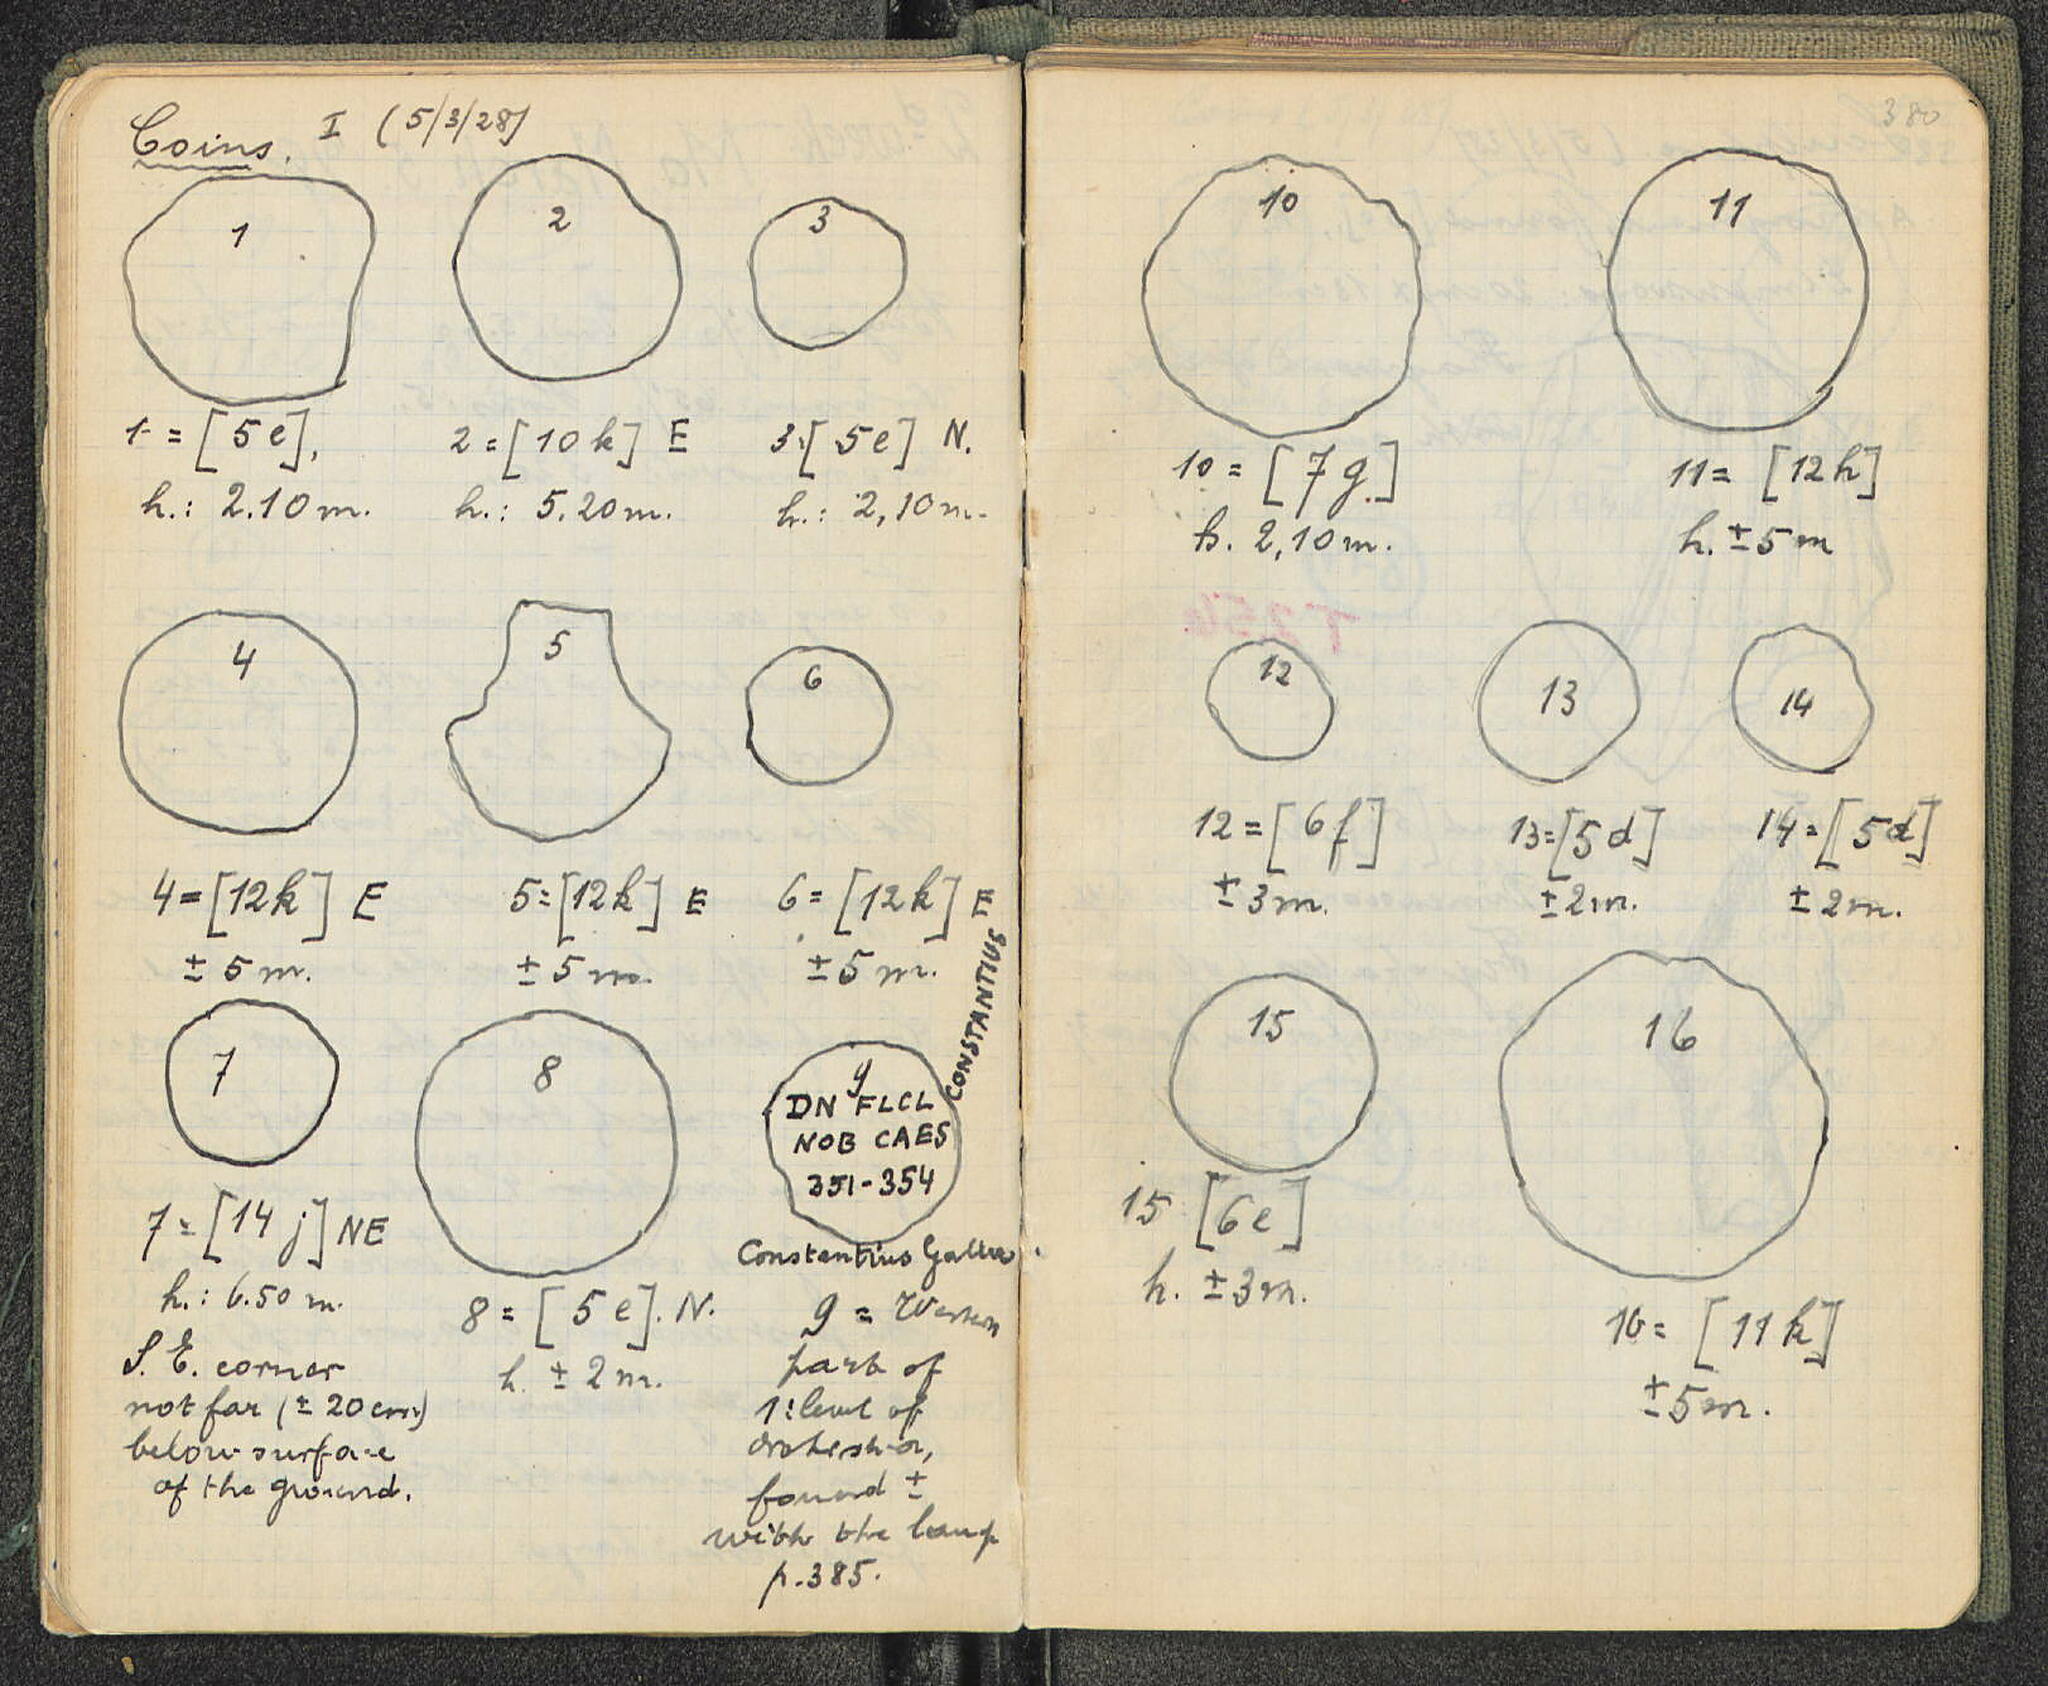 Coins. I (5/3/28)
1
2
3
1 = [5e].
h.: 2.10 m.
2 = [10k] E
h.: 5.20 m.
3 = [5e] N.
h.: 2,10 m.
4
5
6
4 = [12k] E
± 5 m.
5 = [12k] E
± 5 m.
6 = [12k] E
± 5 m.
7
8
9
DN FLCL
NOB CAES
351-354
CONSTANTIUS
Constantius Gallus.
7 = [14 j] NE
h.: 6.50 m.
S. E. corner
not far (± 20 cm)
below surface
of the ground.
8 = [5e]. N.
h. ± 2 m.
9 = Western
part of
1: level of
orchestra,
found ±
with the lamp
p. 385.
380
10
11
10 = [7g.]
h. 2,10 m.
11 = [12k]
h. ± 5 m
12
13
14
12 = [6f]
± 3 m.
13 = [5d]
± 2 m.
14 = [5d]
± 2 m.
15
16
15 [6e]
h. ± 3 m.
16 = [11k]
± 5 m.